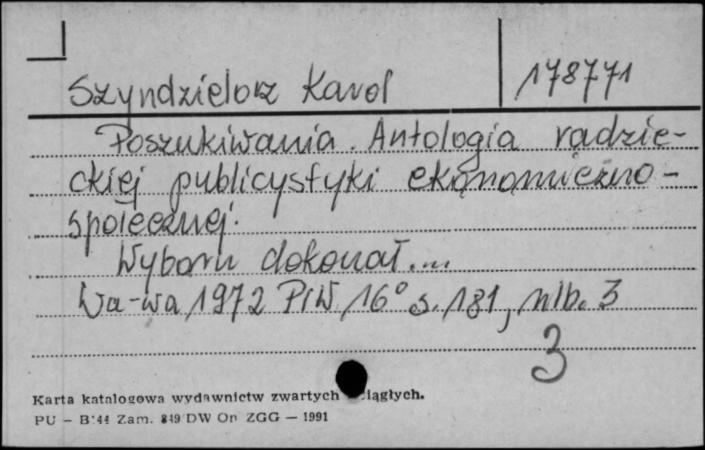 Szyndzielorz Karol 178771
Poszukiwania. Antologia radzie-
ckiej publicystyki ekonomiczno-
społecznej.
Wyboru dokonał....
Wa-wa 1972 PIW 16° s. 181, nlb. 3
3
Karta katalogowa wydawnictw zwartych ciągłych.
PU - B:44 Zam. 849 DW Op ZGG — 1991